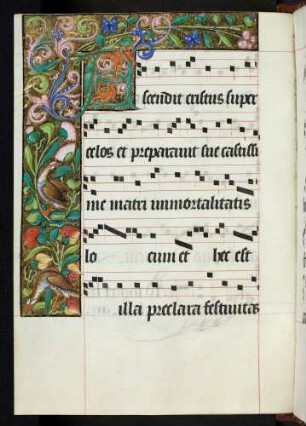 Ascendit cristus super
celos et preparauit sue castissi
me matri immortalitatis
lo cum et hec est
illa preclara festiuitas